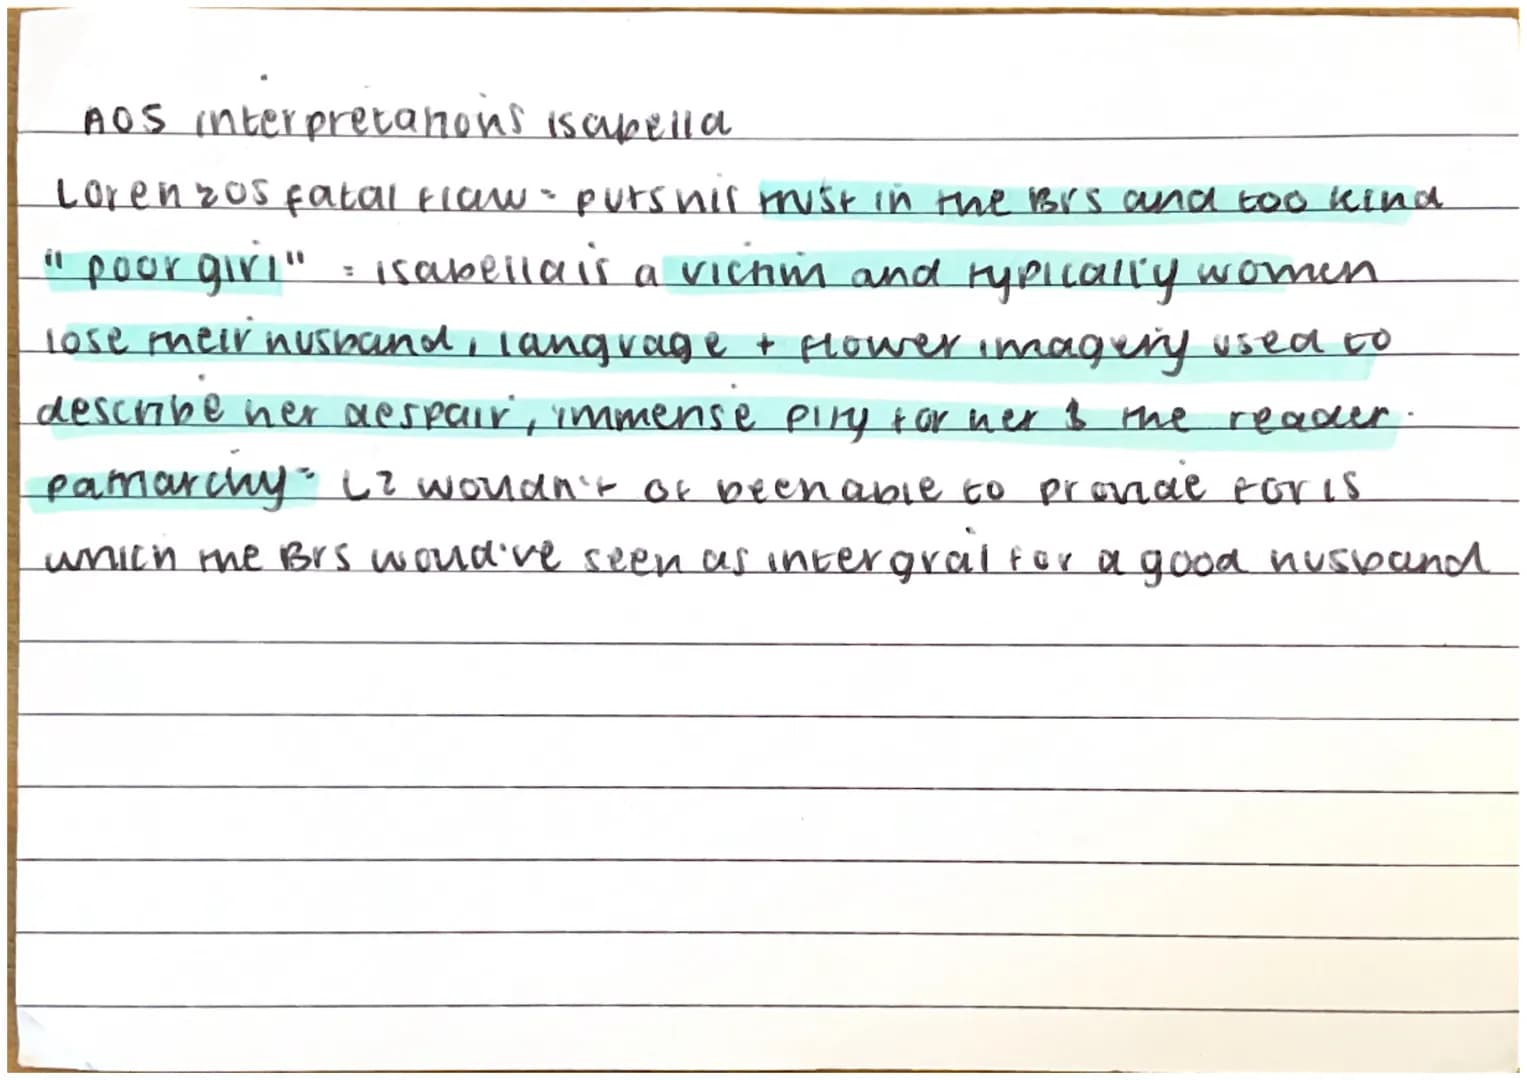 AO5 interpretations isabella
Lorenzos fatal flaw = puts his trust in the Brs and too kind
"poor girl" = isabella is a victim and typically women
lose their husband, language + flower imagery used to
describe her despair, immense pity for her & the reader.
patriarchy = LZ woudn't of been able to provide for IS
which the Brs woud've seen as intergral for a good husband